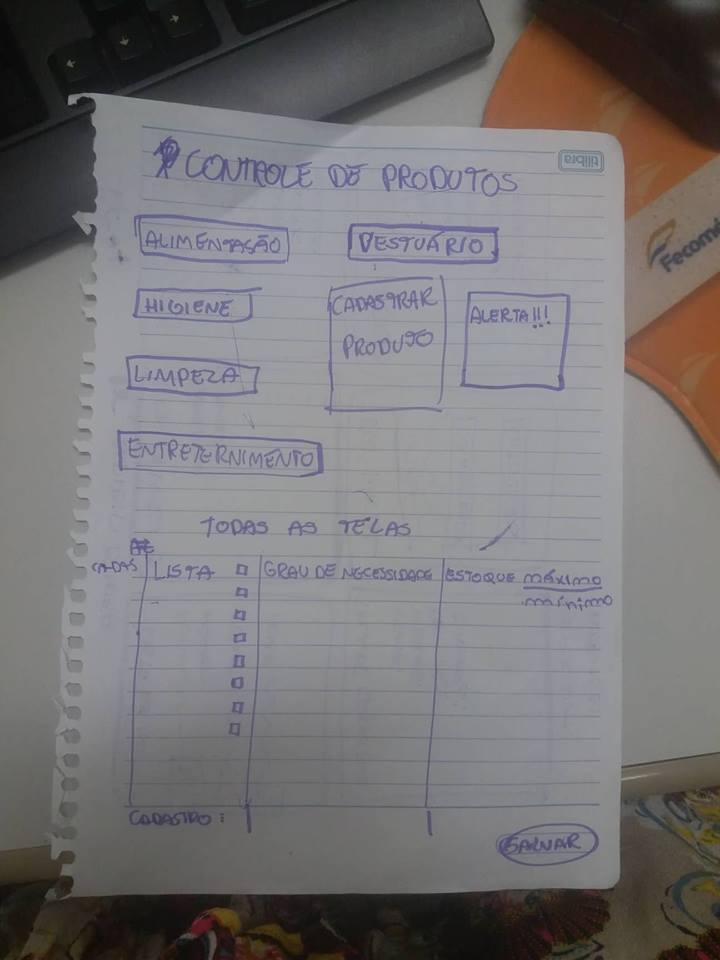 tilibra
CONTROLE DE PRODUTOS
Fecomé
ALIMENTAÇÃO
VESTUÁRIO
HIGIENE
CADASTRAR
PRODUTO
ALERTA!!!
LIMPEZA
ENTRETERNIMENTO
TODAS AS TELAS
LISTA GRAU DE NECESSIDADE ESTOQUE máximo
mínimo
CADASTRO:
SALVAR